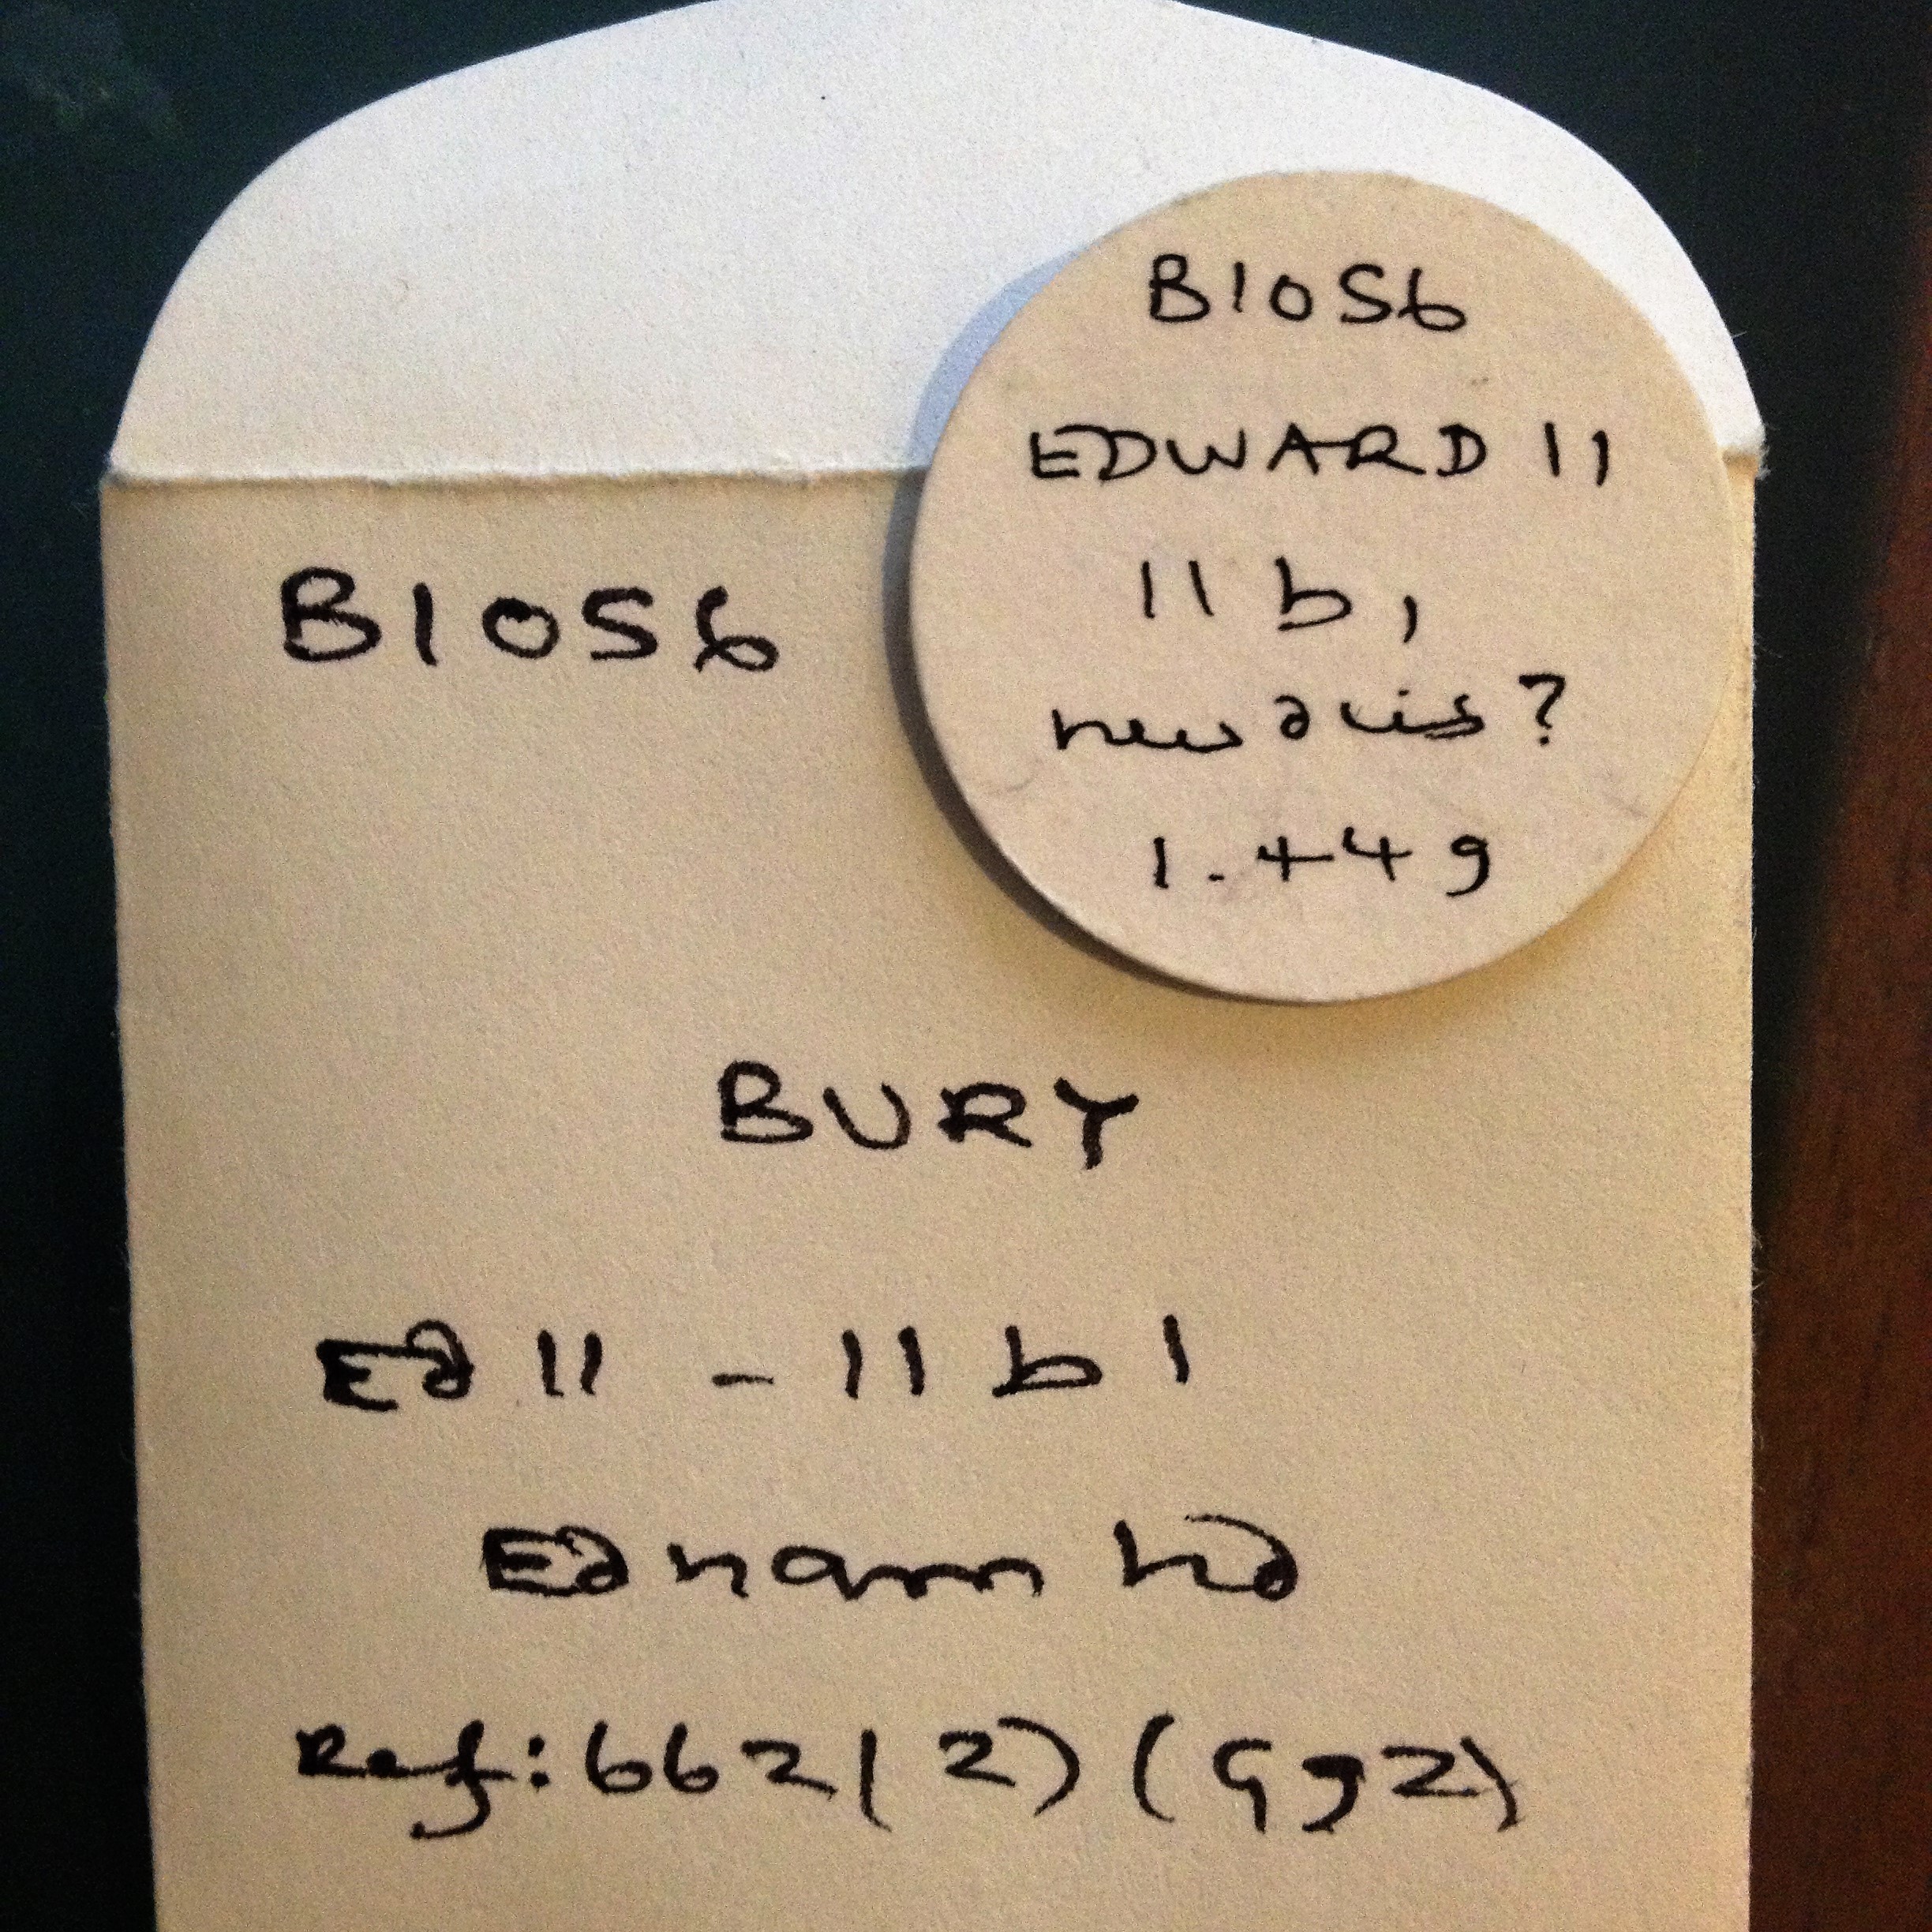 B1056
EDWARD 11
11 b 1
new dies?
1.44g
B1056
BURY
Ed 11 - 11 b 1
Ref: 662(2)